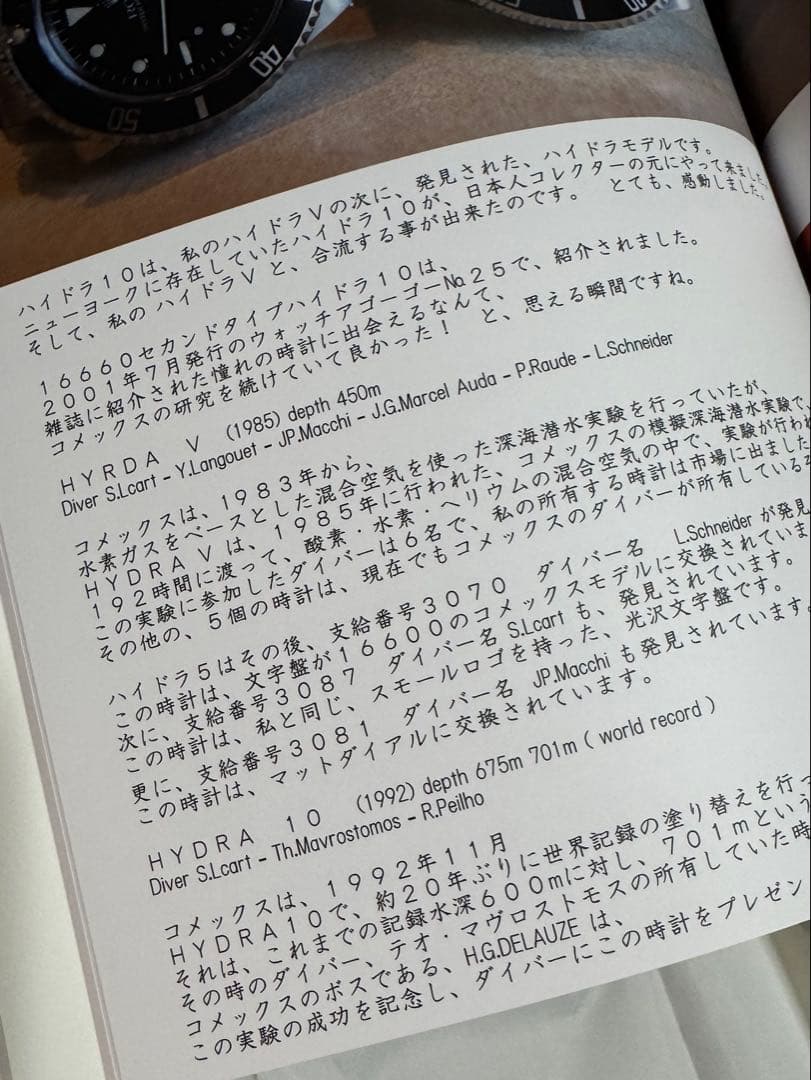 50
40
ハイドラ10は、私のハイドラVの次に、発見された、ハイドラモデルです。
ニューヨークに存在していたハイドラ10が、日本人コレクターの元にやって来ました。
そして、私の ハイドラV と、合流する事が出来たのです。 とても、感動しました。
16660セカンドタイプハイドラ10は、
2001年7月発行のウォッチアゴーゴー№25で、紹介されました。
雑誌に紹介された憧れの時計に出会えるなんて、
コメックスの研究を続けていて良かった! と、思える瞬間ですね。
HYRDA V (1985) depth 450m
Diver S.Lcart – Y.Langouet – JP.Macchi – J.G.Marcel Auda – P.Raude – L.Schneider
コメックスは、1983年から、
水素ガスをベースとした混合空気を使った深海潜水実験を行っていたが、
HYDRA Vは、1985年に行われた、コメックスの模擬深海潜水実験で、
192時間に渡って、酸素・水素・ヘリウムの混合空気の中で、実験が行われ
この実験に参加したダイバーは6名で、私の所有する時計は市場に出ました
その他の、5個の時計は、現在でもコメックスのダイバーが所有している
ハイドラ5はその後、支給番号3070 ダイバー名 L.Schneider が発見
この時計は、文字盤が16600のコメックスモデルに交換されていま
次に、支給番号3087 ダイバー名 S.Lcart も、発見されています。
この時計は、私と同じ、スモールロゴを持った、光沢文字盤です。
更に、支給番号3081 ダイバー名 JP.Macchi も発見されています
この時計は、マットダイアルに交換されています。
HYDRA 10 (1992) depth 675m 701m ( world record )
Diver S.Lcart – Th.Mavrostomos – R.Peilho
コメックスは、1992年11月
HYDRA10で、約20年ぶりに世界記録の塗り替えを行っ
それは、これまでの記録水深600mに対し、701mという
その時のダイバー、テオ・マヴロストモスの所有していた時
コメックスのボスである、H.G.DELAUZE は、
この実験の成功を記念し、ダイバーにこの時計をプレゼン